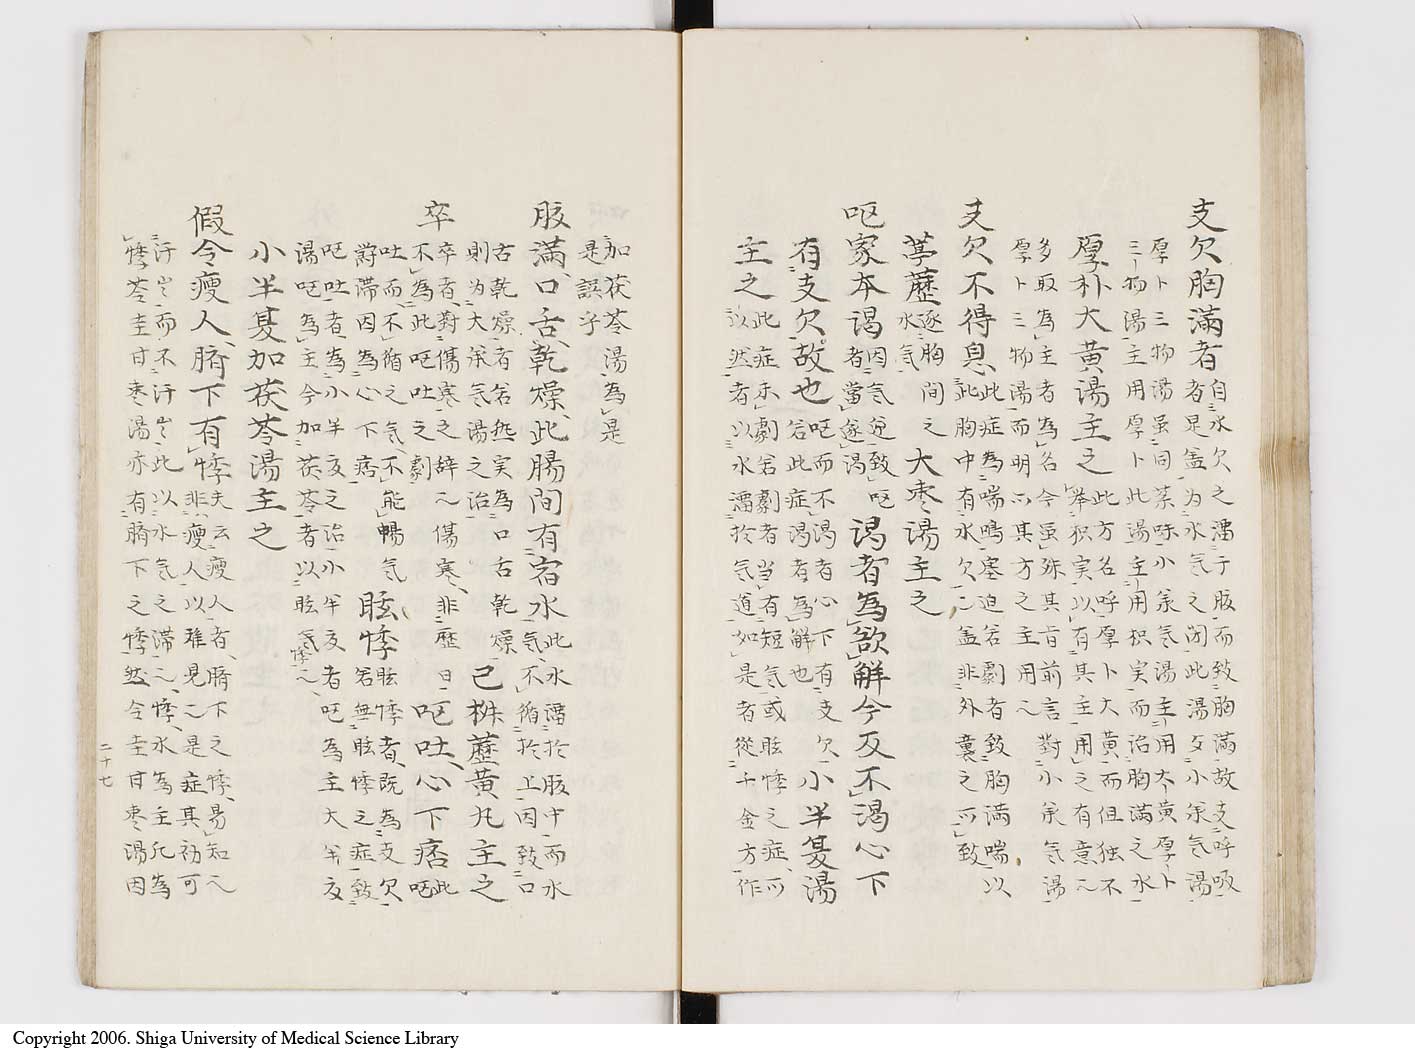 支欠胸滿者自水欠之溜于胸而致胸滿故支呼吸
者是盖為水氣之閉此湯亥小承氣湯
厚卜三物湯虽同菜味小承氣湯主用大黄厚卜
三物湯主用厚卜此湯主用枳実而治胸滿之水
厚朴大黄湯主之此方名呼厚卜大黄而但独不
举枳実以有其主用之有意
多取為主者為名今虽殊其旨前言對小承气湯
厚卜三物湯而明以其方之主用
支欠不得息此症為喘鳴塞迫若劇者致胸满喘以
此胸中有水欠盖非外囊之所致
葶藶逐胸間之水氣大棗湯主之
呕家本渴因气逆致呕者當遂渴渴者為欲解今反不渴心下
有支欠故也呕而不渴者心下有支欠
若此症渴者為解也小半夏湯
主之此症示劇若劇者当有短气或眩悸之症所
以然者以水溜於气道如是者從千金方作
加茯苓湯為是
是誤字
腹滿口舌乾燥此腸間有宿水此水溜於腹中而水
氣不循於上因致口
古乾燥者若热実為口古乾燥
則为大承气湯之治己椒藶黄丸主之
卒卒者對傷寒之辞傷寒非歴日呕吐心下痞此呕
不為此呕吐之劇
吐而不循之气不能暢气
欝滞因為心下痞眩悸眩悸者既為支欠
若無眩悸之症致
呕吐者為小半夏之治小半夏者呕為主大半夏
湯呕為主今加茯苓者以眩悸
小半夏加茯苓湯主之
假令瘦人臍下有悸夫云瘦人者臍下之悸易知
非瘦人以难見是症其初可
汗岂而不汗岂此以水气之滞悸水為主凡為
悸苓圭甘枣湯亦有臍下之悸然令圭甘枣湯因
二十七
Copyright 2006. Shiga University of Medical Science Library